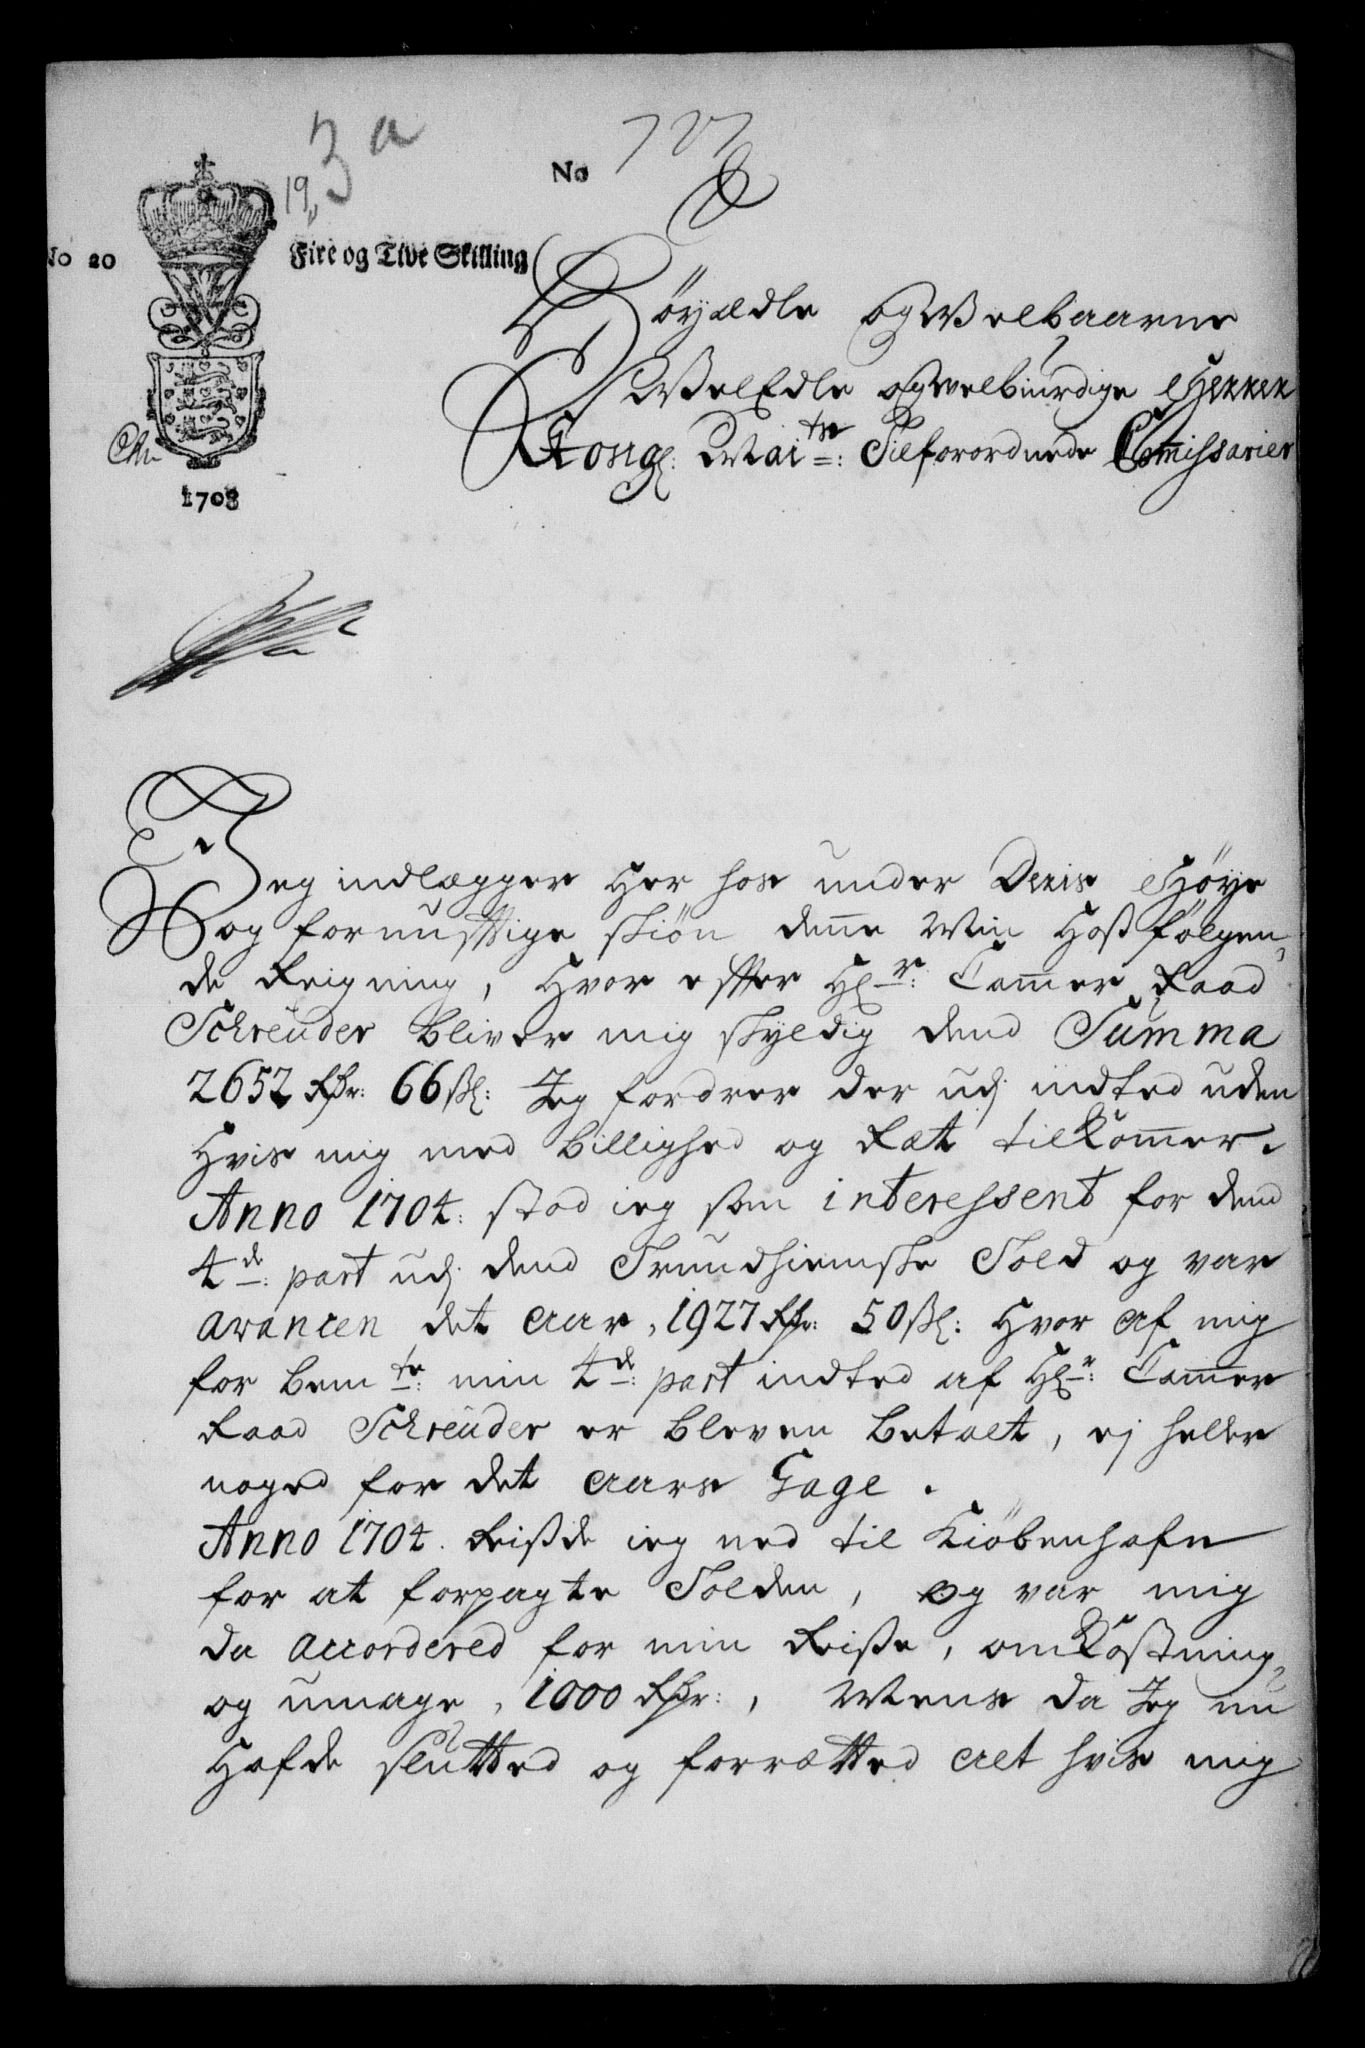 3 a
19
No 727
No 20
Fire og Tive Skilling
1708
Höyædle og Velbaarne
VelEdle og velbiurdige Herrer
Kongl: Mai=te: Tilforordnede Commissarier
Jeg indlægger her hos under Deris Höye
og fornufftige skiön denne Min Hoß følgen,
de Reigning, Hvor efter Hl-r: Cammer Raad
Schreüder bliver mig skyldig dend Summa
2652 Rdr: 66 ßl: Jeg fordrer der udj indted uden
Hvis mig med billighed og Ræt tilkommer.
Anno 1704: stod ieg som interessent for dend
4de: part udj dend Trundhiemske Told og var
avancen det Aar, 1927 Rdr: 50 ßl: Hvor af mig
for bemte: min 4de: part indted af Hl-r: Cammer
Raad Schreüder er bleven betalt, ej heller
noged for det Aars Gage.
Anno 1704. Reißde ieg ned til Kiöbenhafn
for at forpagte Tolden, og var mig
da accordered for min Reiße, omkoßtning,
og umage, 1000 Rdr:, Mens da Jeg nu
Hafde slutted og forrætted alt hvis mig